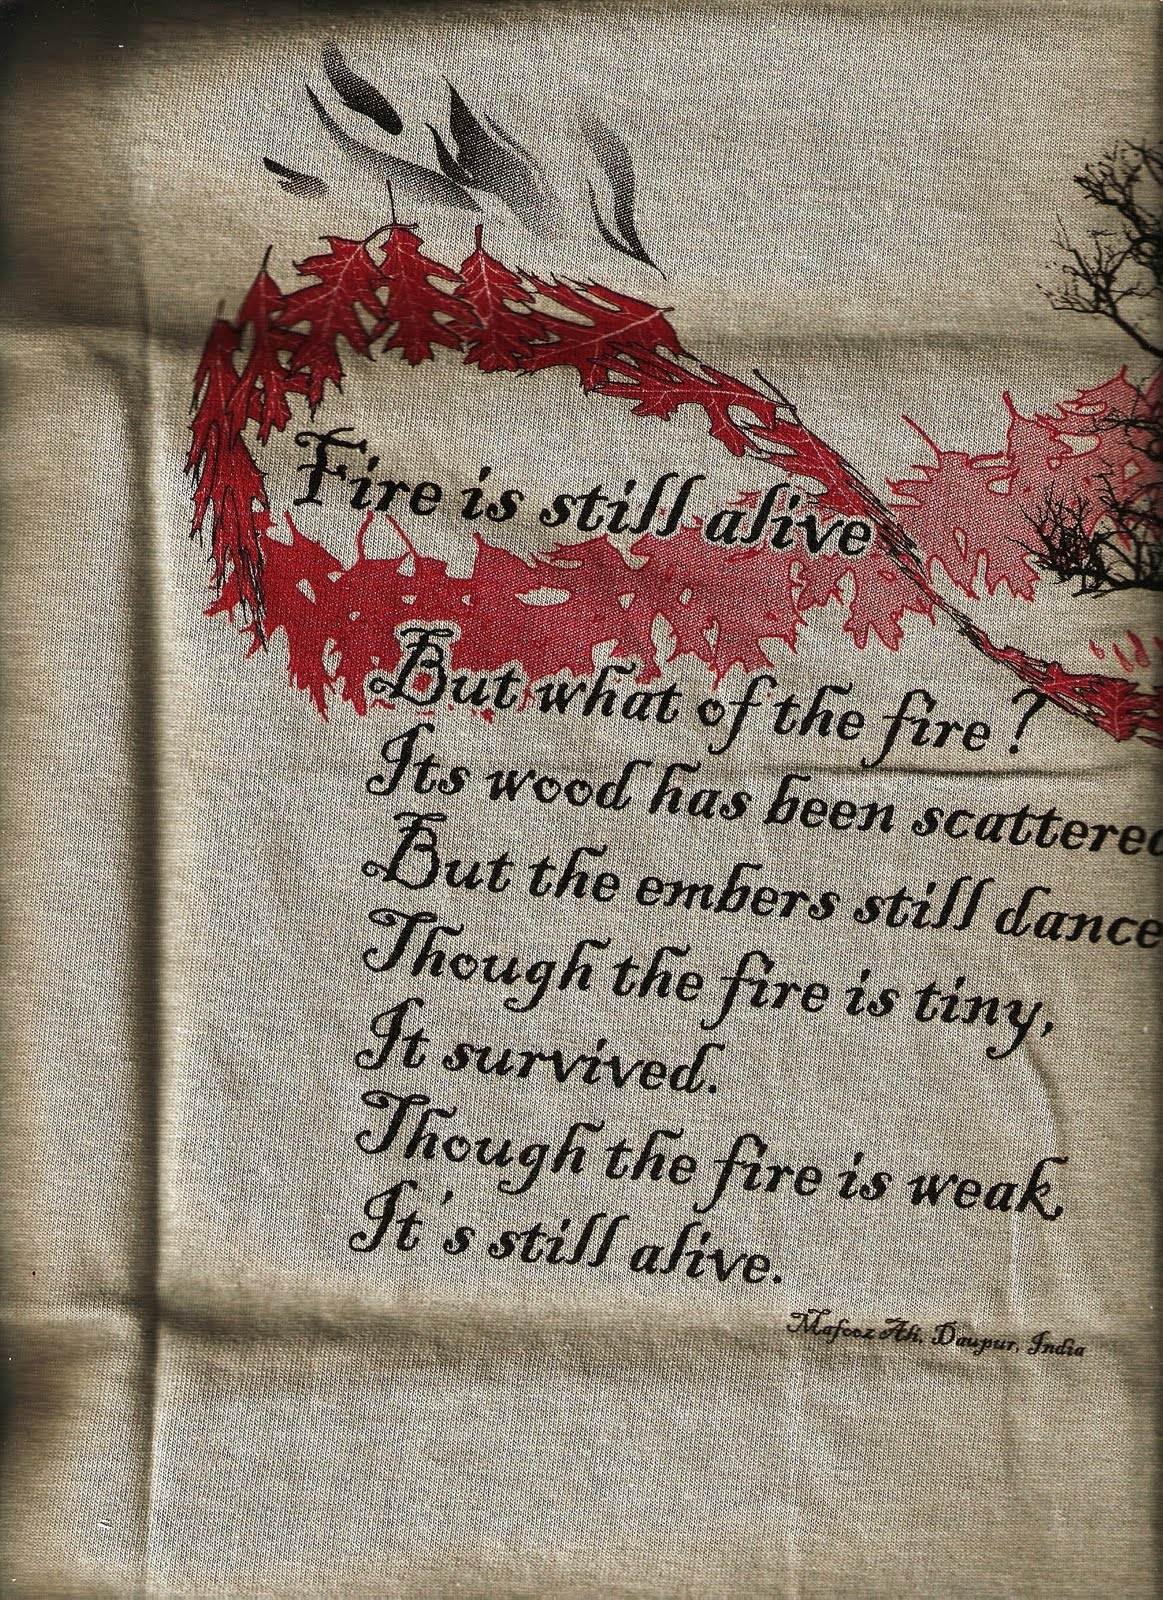 Fire is still alive
But what of the fire?
Its wood has been scattered
But the embers still dance
Though the fire is tiny,
It survived.
Though the fire is weak,
It's still alive.
Mafooz Ali, Daupur, India